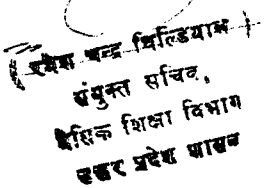 ( रमेश चन्द्र घिल्डियाल )
संयुक्त सचिव,
बेसिक शिक्षा विभाग
उत्तर प्रदेश शासन